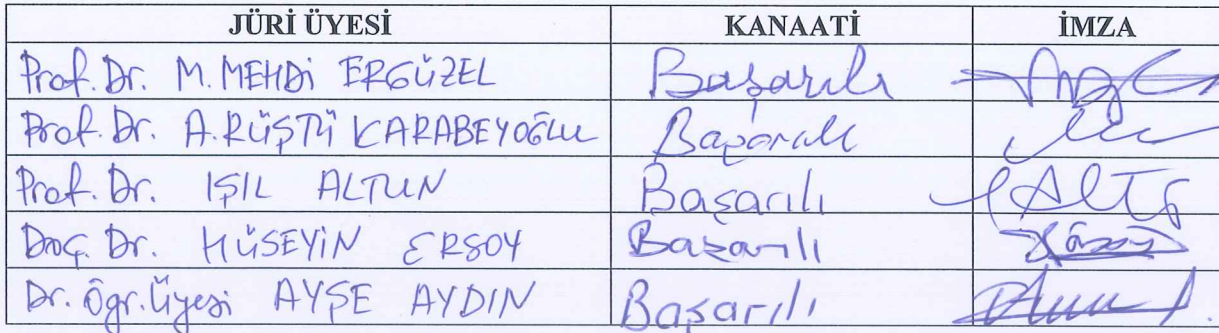 JÜRİ ÜYESİ KANAATİ İMZA
Prof. Dr. M. MEHDİ ERGÜZEL Başarılı
Prof. Dr. A. RÜŞTÜ KARABEYOĞLU Başarılı
Prof. Dr. IŞIL ALTUN Başarılı
Doç. Dr. HÜSEYİN ERSOY Başarılı
Dr. Öğr. Üyesi AYŞE AYDIN Başarılı